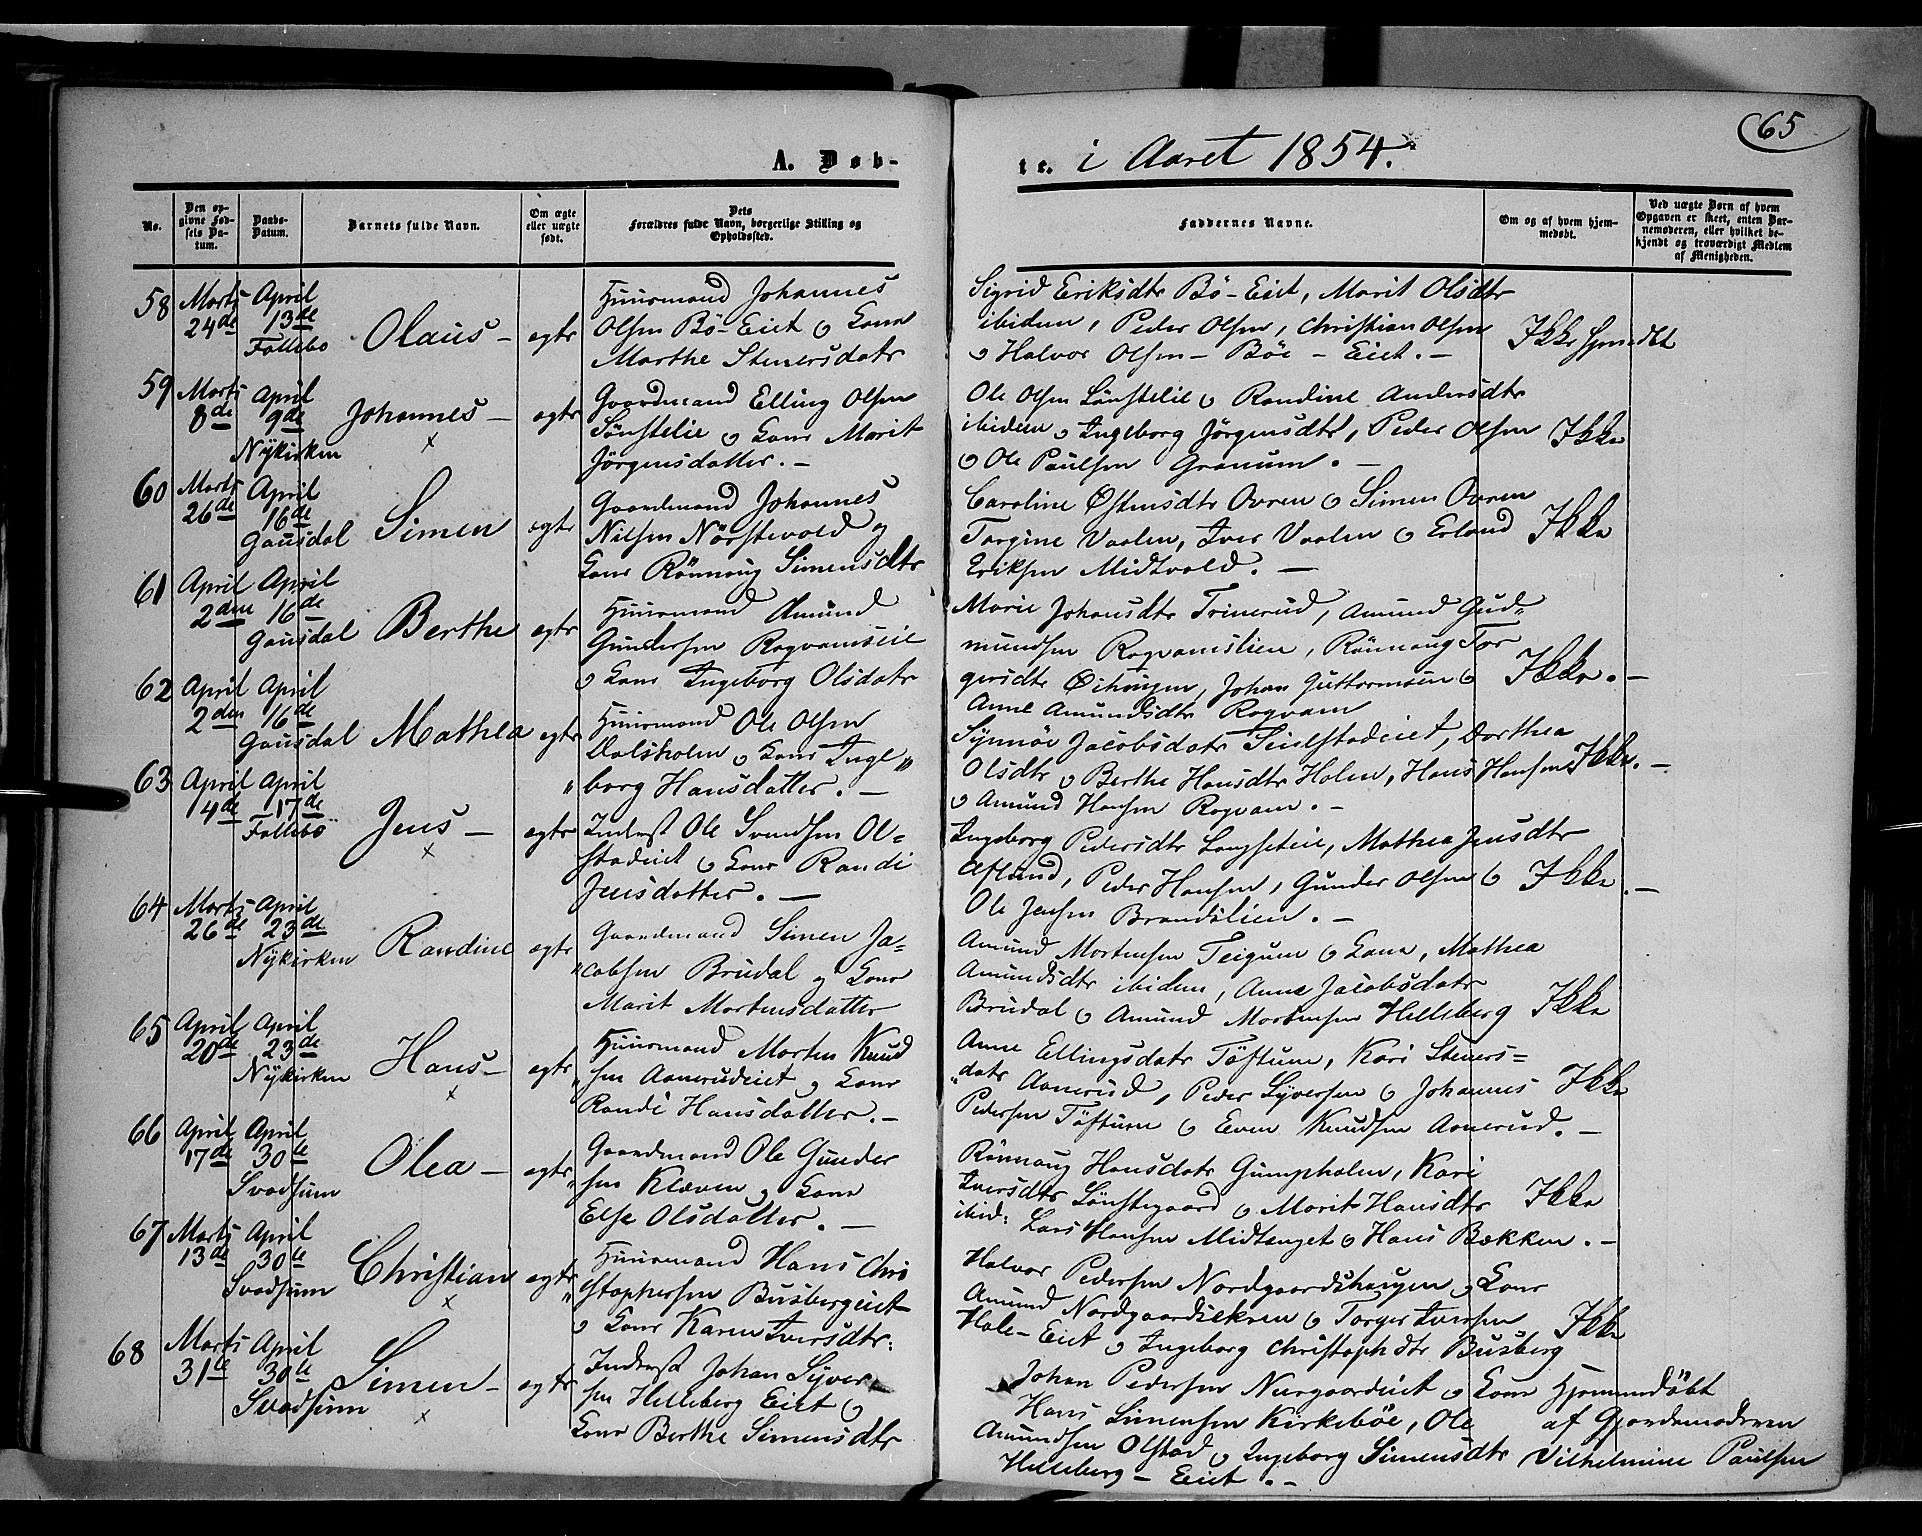 65
A. Døb-
te. i Aaret 1854.
No.
Den opgivne Fødsels Datum.
Daabs-Datum.
Barnets fulde Navn.
Om ægte eller uægte født.
Dets Forældres fulde Navn, borgerlige Stilling og Opholdssted.
Faddernes Navne.
Om og af hvem hjemmedøbt.
Ved uægte Børn af hvem Opgaven er skeet, enten Barnemoderen, eller hvilket bekjendt og troværdigt Medlem af Menigheden.
58 Marts 24de April 13de Follebo Olaus – ægte
Huusmand Johannes
Olsen Bö-Eiet o Kone
Marthe Stenersdatr
Sigrid Eriksdtr Bö-Eiet, Marit Olsdtr
ibidem, Peder Olsen, Christian Olsen
o Halvor Olsen – Böe – Eiet. –
Ikke hjemdbt
59 Marts 8de April 9de Nÿkirken Johannes – x ægte
Gaardmand Elling Olsen
Sönstelie o Kone Marit
Jörgensdatter. –
Ole Olsen Sönstelie o Randine Andersdtr
ibidem o Ingeborg Jörgensdtr, Peder Olsen
o Ole Paulsen Granum. –
Ikke
60 Marts 26de April 16de Gausdal Simen ægte
Gaardmand Johannes
Nilsen Nörstevold og
Kone Rönnoug Simensdtr
Caroline Østensdtr Ovren o Simen Ovren
Torgine Vaalen, Iver Vaalen o Erland
Eriksen Midtvold. –
Ikke
61 April 2den April 16de Gausdal Berthe ægte
Huusmand Amund
Gundersen Rogvamseie
o Kone Ingeborg Olsdatr
Marie Johansdtr Trinerud, Amund Gud-
mundsen Rogvamslien, Rönnoug Tor
gersdtr Öihougen, Johan Guttormsen o
Anne Amundsdtr Rogvam
Ikke. –
62 April 2den April 16de Gausdal Mathea ægte
Huusmand Ole Olsen
Dalsholen o Kone Inge"
"borg Hansdatter. –
Synnöe Jacobsdatr , Dorthea
Olsdtr o Berthe Hansdtr Holen, Hans Hansen
o Amund Hansen Rogvam. –
Ikke. –
63 April 14de April 17de Follebo Jens – x ægte
Inderst Ole Svendsen Ol-
stadeiet o Kone Randi
Jensdatter. –
Ingeborg Pedersdtr , Mathea Jensdtr
Aflund, Peder Hansen, Gunder Olsen o
Ole Jensen Brandslien. –
Ikke. –
64 Marts 26de April 23de Nÿkirken Randine ægte
Gaardmand Simen Ja-
"cobsen Brudal og Kone
Marit Mortensdatter
Amund Mortensen Teigum o Kone, Mathea
Amundsdtr ibidem, Anne Jacobsdatr
Brudal o Amund Mortensen Helleberg
Ikke
65 April 20de April 23de Nÿkirken Hans – x ægte
Huusmand Morten Knud
"sen Aanerudeiet o Kone
Randi Hansdatter. –
Anne Ellingsdatr Töftum, Kari Steners-
"datr Aanerud, Peder Syversen o Johannes
Pedersen Töftum o Even Knudsen Aanerud. –
Ikke
66 April 17de April 30te Svadsum Olea – ægte
Gaardmand Ole Gunder
"sen Klæven o Kone
Else Olsdatter. –
Rönnoug Hansdatr Gumpholen, Kari
Iversdtr Sönstegaard o Marit Hansdtr
ibid: Lars Hansen Midtenget o Hans Bækken. –
Ikke
67 Marts 13de April 30te Svadsum Christian x ægte
Huusmand Hans Chri
"stophersen Busbergeiet
o Kone Karen Iversdtr:
Halvor Pedersen Nordgaardshaugen o Kone
Amund Nordgaardsekren o Torger Iversen
Hole-Eiet o Ingeborg Christophdtr Busberg
Ikke
68 Marts 31te April 30te Svadsum Simen – x ægte
Inderst Johan Syver
sen Helleberg Eiet o
Kone Berthe Simensdtr
Johan Pedersen Nergaardeiet o Kone
Hans Simensen Kirkeböe, Ole
Amundsen Olstad o Ingeborg Simensdtr
Helleberg – Eiet. –
Hjemmedöbt
af Gjordemoderen
Vilhelmine Paulsen